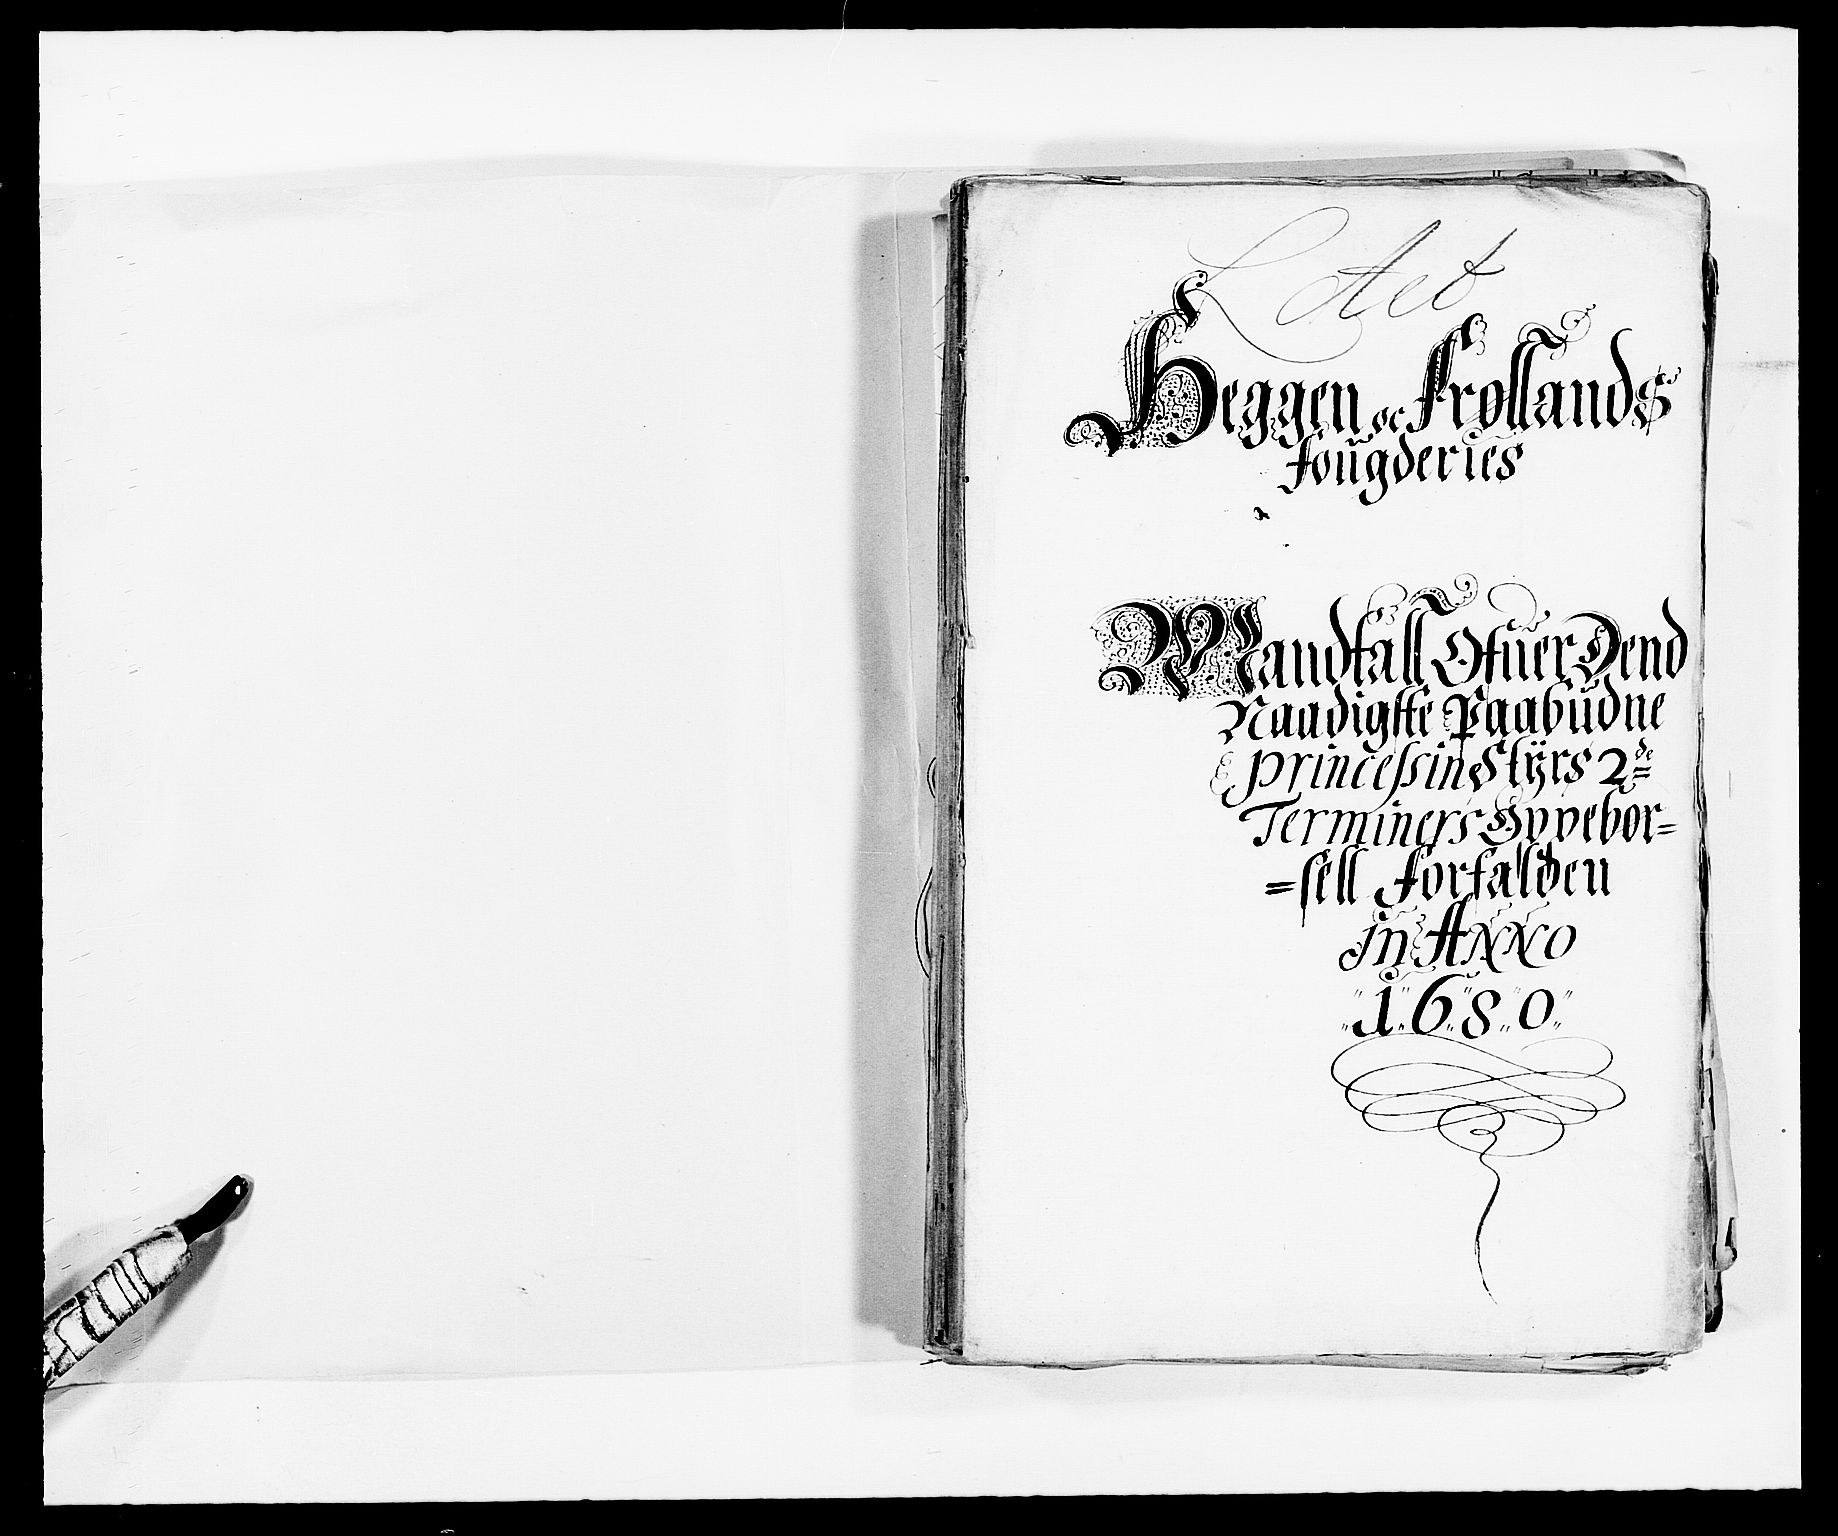 Heggen oc Frøllands
fougderies
Mandtall Ofuer Dend
Naadigste Paabudne
Princessin Styrs 2de
Terminers Oppebor=
=sell Forfalden
in Anno
1680